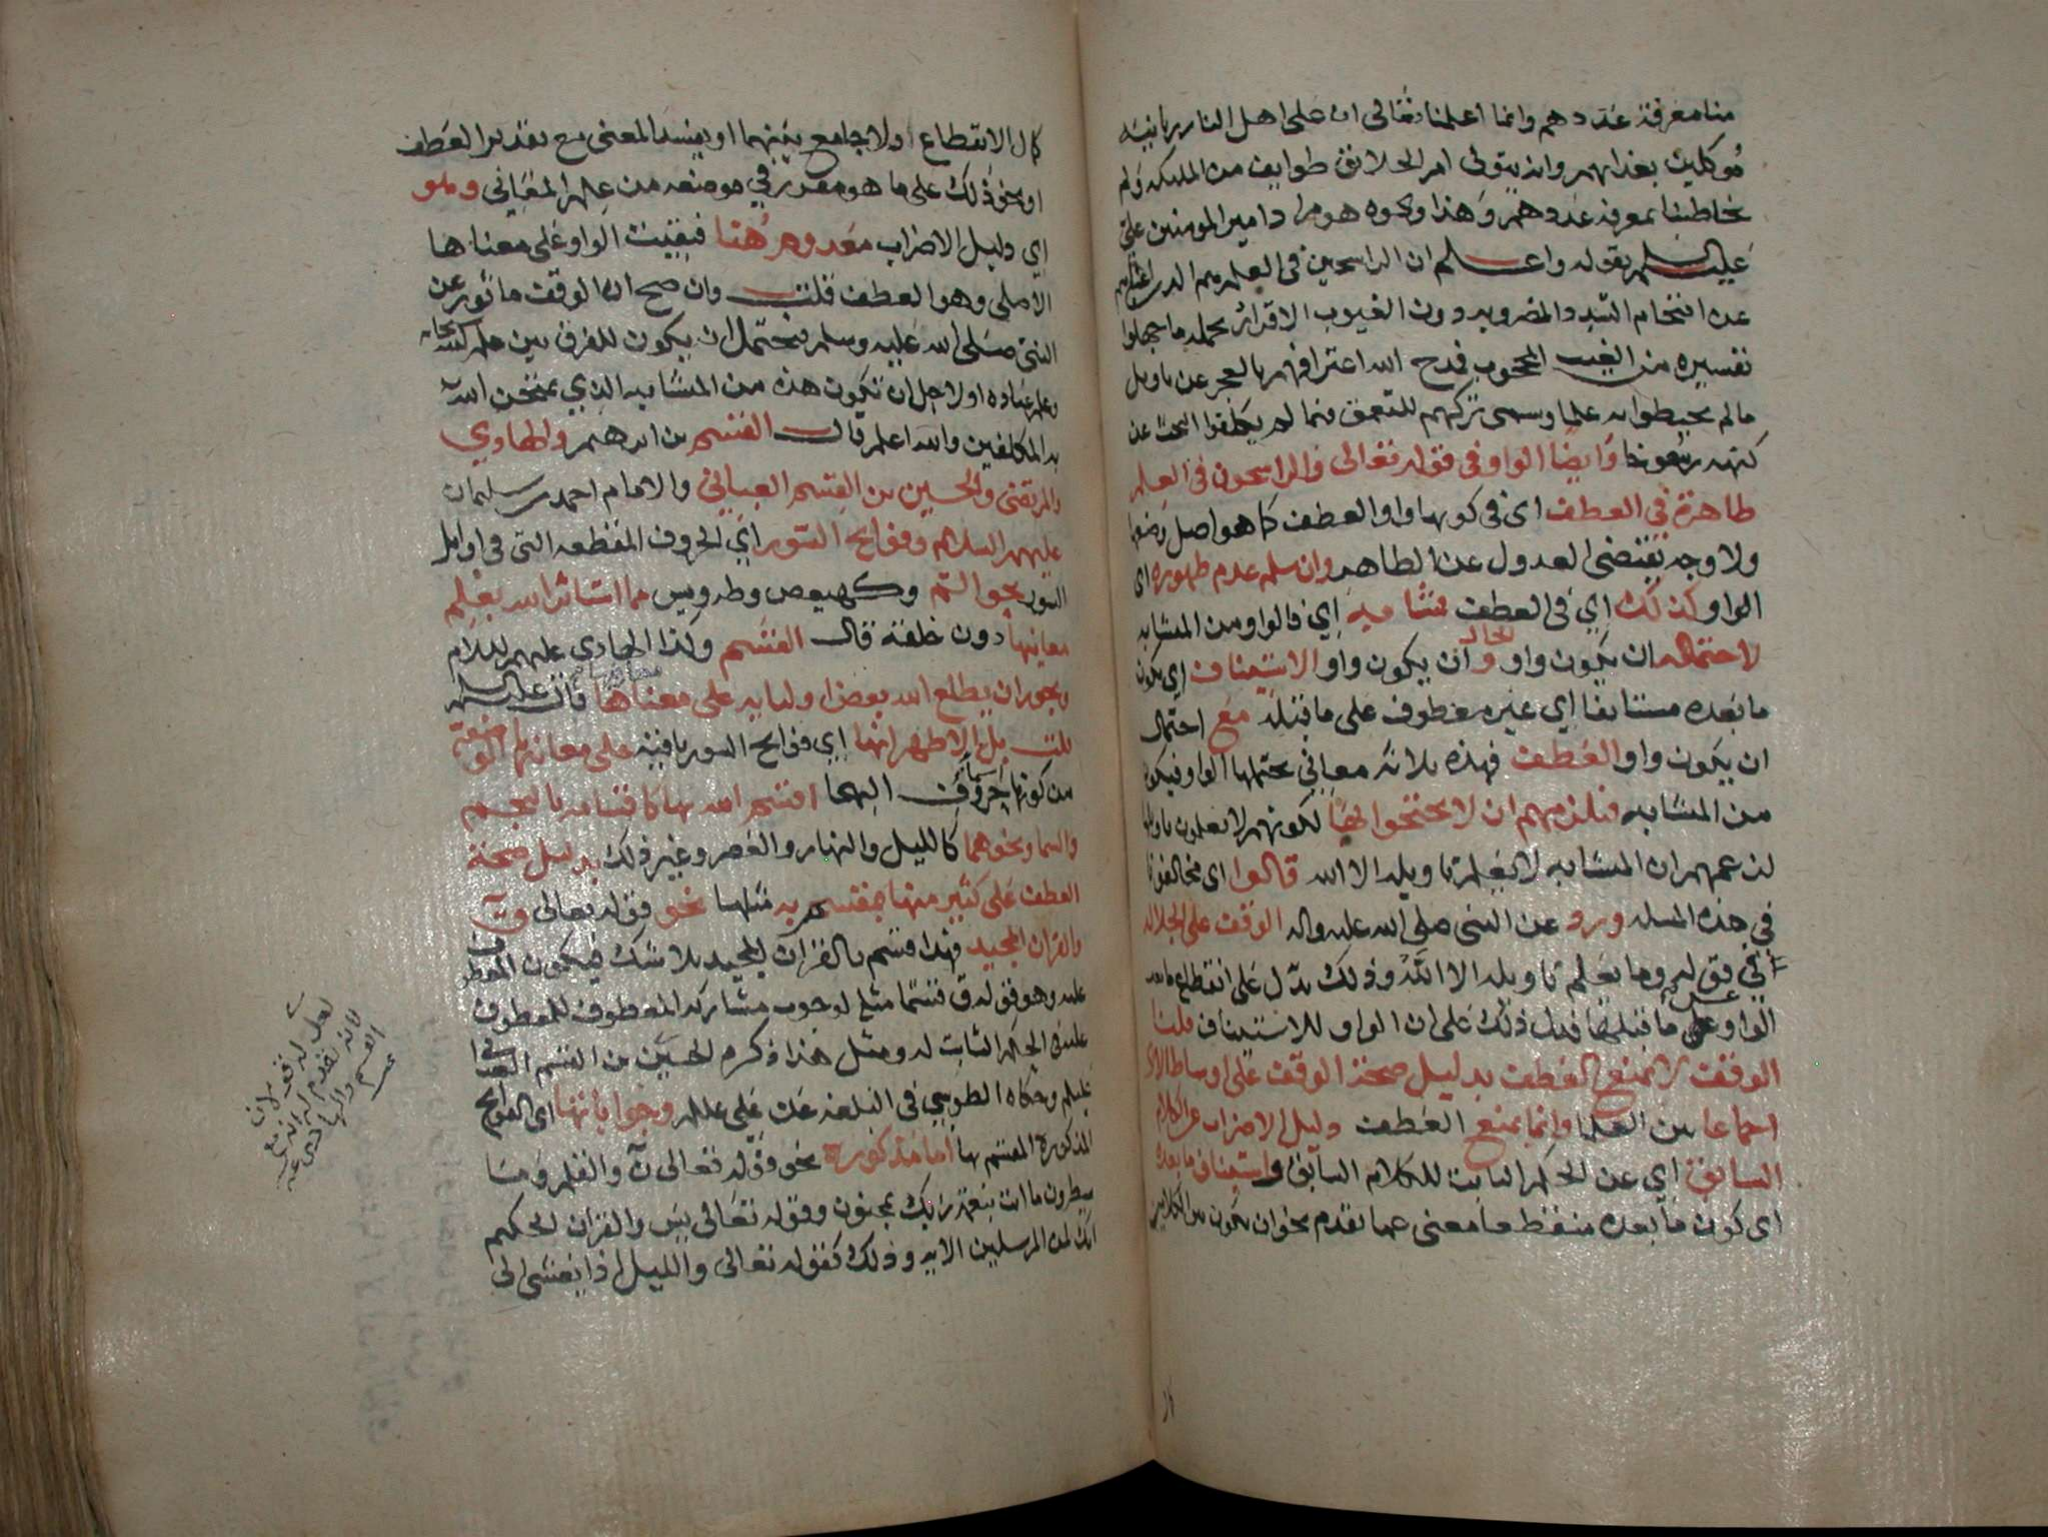 منا معرفة عددهم وانما اعلمنا تعالى ان على اهل النار زبانية
موكلين بعذابهم وانه يتولى امر الخلائق طوايف من الملايكة ولم
يخاطبنا بمعرفة عددهم وهذا ونحوه هو مراد امير المومنين علي
عليه السلم بقوله واعلم ان الراسخين في العلم هم الذين اغناهم
عن اقتحام السدد المضروبة دون الغيوب الاقرار بجملة ما جهلوا
تفسيره من الغيب المحجوب فمدح الله اعترافهم بالعجز عن تاويل
ما لم يحيطوا به علما وسمى تركهم للتعمق فيما لم يكلفوا البحث عن
كنهه رسوخا وايضا الواو في قوله تعالى والراسخون في العلم
ظاهرة في العطف اي في كونها واو العطف كما هو اصل وضعها
ولا وجه يقتضي العدول عن الظاهر وان سلم عدم ظهوره اي
الواو كذلك اي في العطف فمتشابه اي فالواو من المتشابه
لاحتماله ان يكون واو الحال وان يكون واو الاستيناف اي يكون
ما بعده مستانفا اي غير معطوف على ما قبله مع احتمال
ان يكون واو العطف فهذه ثلاثة معاني يحتملها الواو فيكون
من المتشابه فيلزمهم ان لا يحتجوا بها لكونهم لا يعلمون تاويلها
لزعمهم ان المتشابه لا يعلم تاويله الا الله قالوا اي مخالفونا
في هذه المسلة ورد عن النبي صلى الله عليه واله الوقف على الجلالة
في قوله وما يعلم تاويله الا الله وذلك يدل على انقطاع ما بعد
الواو عن ما قبلها فدل ذلك على ان الواو للاستيناف قلنا
الوقف لا يمنع العطف بدليل صحة الوقف على اوساط الاي
اجماعا بين العلما وانما يمنع العطف دليل الاضراب عن الكلام
السابق اي عن الحكم الثابت للكلام السابق واستيناف ما بعده
اي كون ما بعده منقطعا معنى عما تقدم نحو ان يكون بين الكلامين
كمال الانقطاع او لا جامع بينهما او يفسد المعنى مع تقدير العطف
او نحو ذلك على ما هو مقرر في موضعه من علم المعاني وهو
اي دليل الاضراب معدوم هنا فبقيت الواو على معناها
الاصلي وهو العطف قلت وان صح ان الوقف ماثور عن
النبي صلى الله عليه وسلم فيحتمل ان يكون للفرق بين علمه سبحانه
وعلم عباده او لاجل ان تكون هذه من المتشابه الذي يمتحن الله
به المكلفين والله اعلم قال القسم بن ابرهيم والهادي
والمرتضى والحسين بن القسم العياني والامام احمد بن سليمان
عليهم السلام وفواتح السور اي الحروف المقطعة التي في اوايل
السور نحو الم وكهيعص وطه ويس مما استاثر الله بعلم
معانيها دون خلقه قال القسم وكذا الهادي عليهم السلام
ويجوز ان يطلع الله بعض اوليايه على معناها قال عليه السلم
قلت بل الاظهر انها اي فواتح السور باقية على معانيها الوضعية
من كونها حروف اسما التهجا اقسم الله بها كاقسامه بالنجم
والسما ونحوهما كالليل والنهار والعصر وغير ذلك بدليل صحة
العطف على كثير منها بمقسم به مثلها نحو قوله تعالى ق
والقران المجيد فهذا قسم بالقران المجيد بلا شك فيكون المعطوف
عليه وهو قوله ق قسما مثله لوجوب مشاركة المعطوف للمعطوف
عليه في الحكم الثابت له ومثل هذا ذكره الحسين بن القسم العياني
عليلم وحكاه الطوسي في البلغة عن علي عليلم وجوابانها اي الفواتح
المذكورة المقسم بها اما مذكورة نحو قوله تعالى ن والقلم وما
يسطرون ما انت بنعمة ربك بمجنون وقوله تعالى يس والقران الحكيم
انك لمن المرسلين الاية وذلك كقوله تعالى والليل اذا يغشى الى